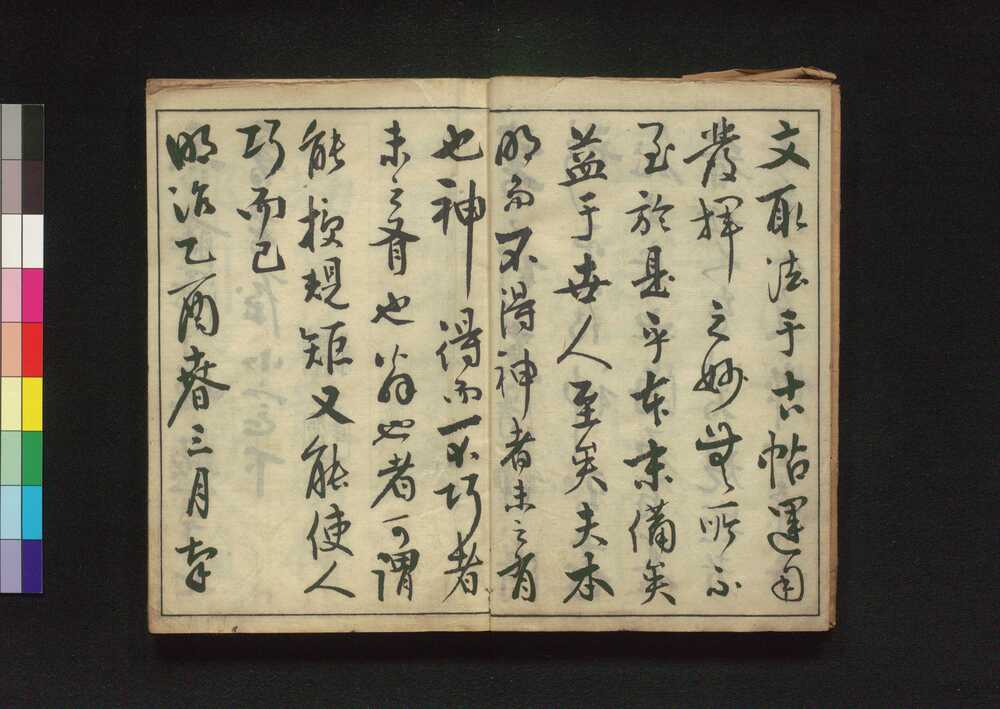 文取法于古帖運用
發揮之妙無所不
至於是乎本末備矣
益于世人至矣夫本
明而不得神者未之有
也神得而不巧者
未之有也翁也者可謂
能模規矩又能使人
巧而已
明治乙酉春三月